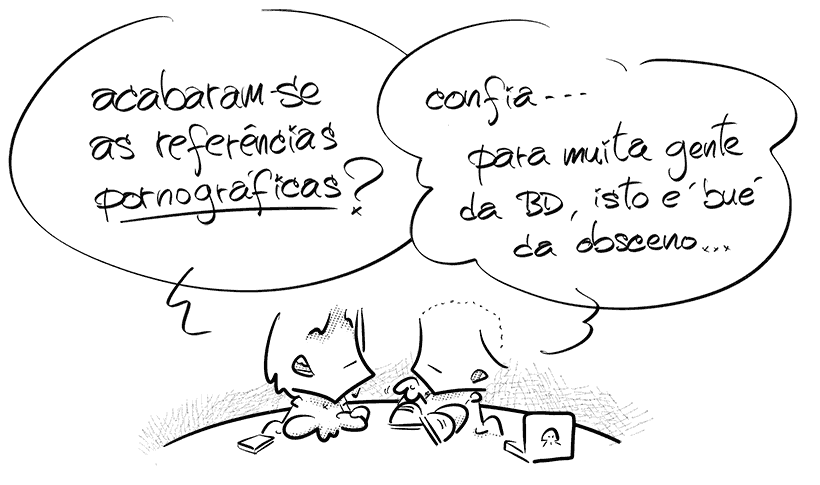 acabaram-se
as referências
pornográficas?
confia...
para muita gente
da BD, isto é bué
da obsceno...